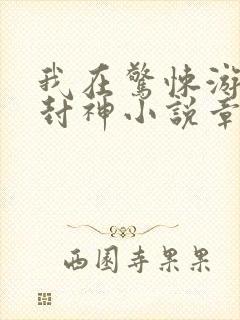 我在驚悚游
封神小說章
西園寺果果